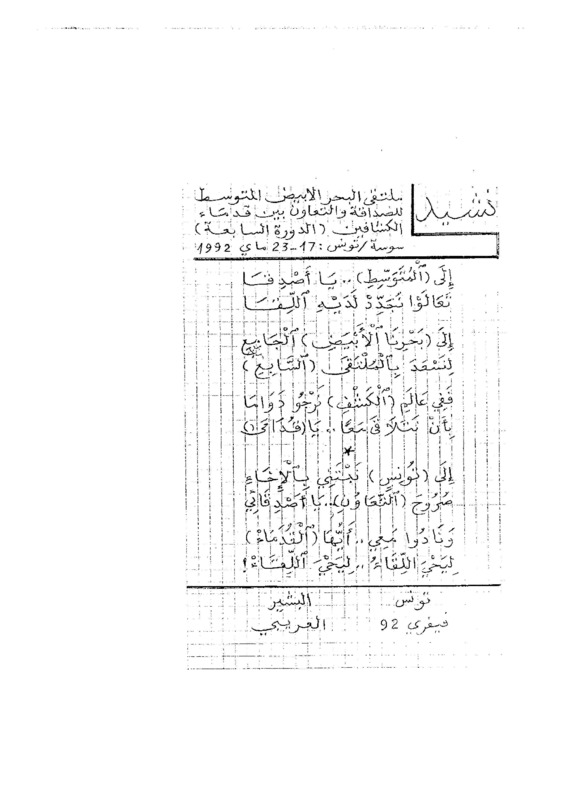 نشيد
ملتقى البحر الابيض المتوسط
للصداقة والتعاون بين قدماء
الكشافين (الدورة السابعة)
سوسة/تونس: 17-23 ماي 1992
إِلَى (ٱلْمُتَوَسِّطِ).. يَا أَصْدِقَا
تَعَالَوْا نُجَدِّدْ لَدَيْهِ ٱللِّقَا
إِلَى (بَحْرِنَا ٱلْأَبْيَضِ) ٱلْجَامِعِ
لِنَسْعَدَ بِٱلْمُلْتَقَى (ٱلسَّابِعِ)
فَفِي عَالَمِ (ٱلْكَشْفِ) نَرْجُو دَوَامَا
بِأَنْ نَتَلَاقَى مَعًا.. يَا (قُدَامَى)
*
إِلَى (تُونِسٍ) نَبْتَنِي بِٱلْإِخَاءِ
صُرُوحَ (ٱلتَّعَاوُنِ).. يَا أَصْدِقَائِي
وَنَادُوا مَعِي.. أَيُّهَا (ٱلْقُدَمَاءْ)
لِيَحْيَ اللِّقَاءُ.. لِيَحْيَ ٱللِّقَاءْ!
تونس البشير
فيفري 92 العريبي